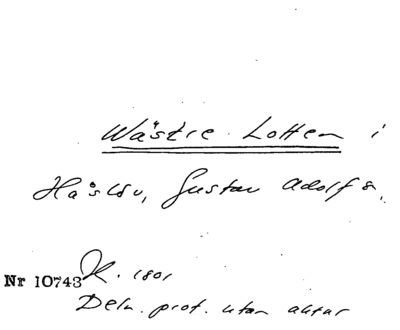 Wästre Lotten i
Håslöv, Gustav Adolf s.
K. 1801
Nr 10743
Deln. prot. utan aktur